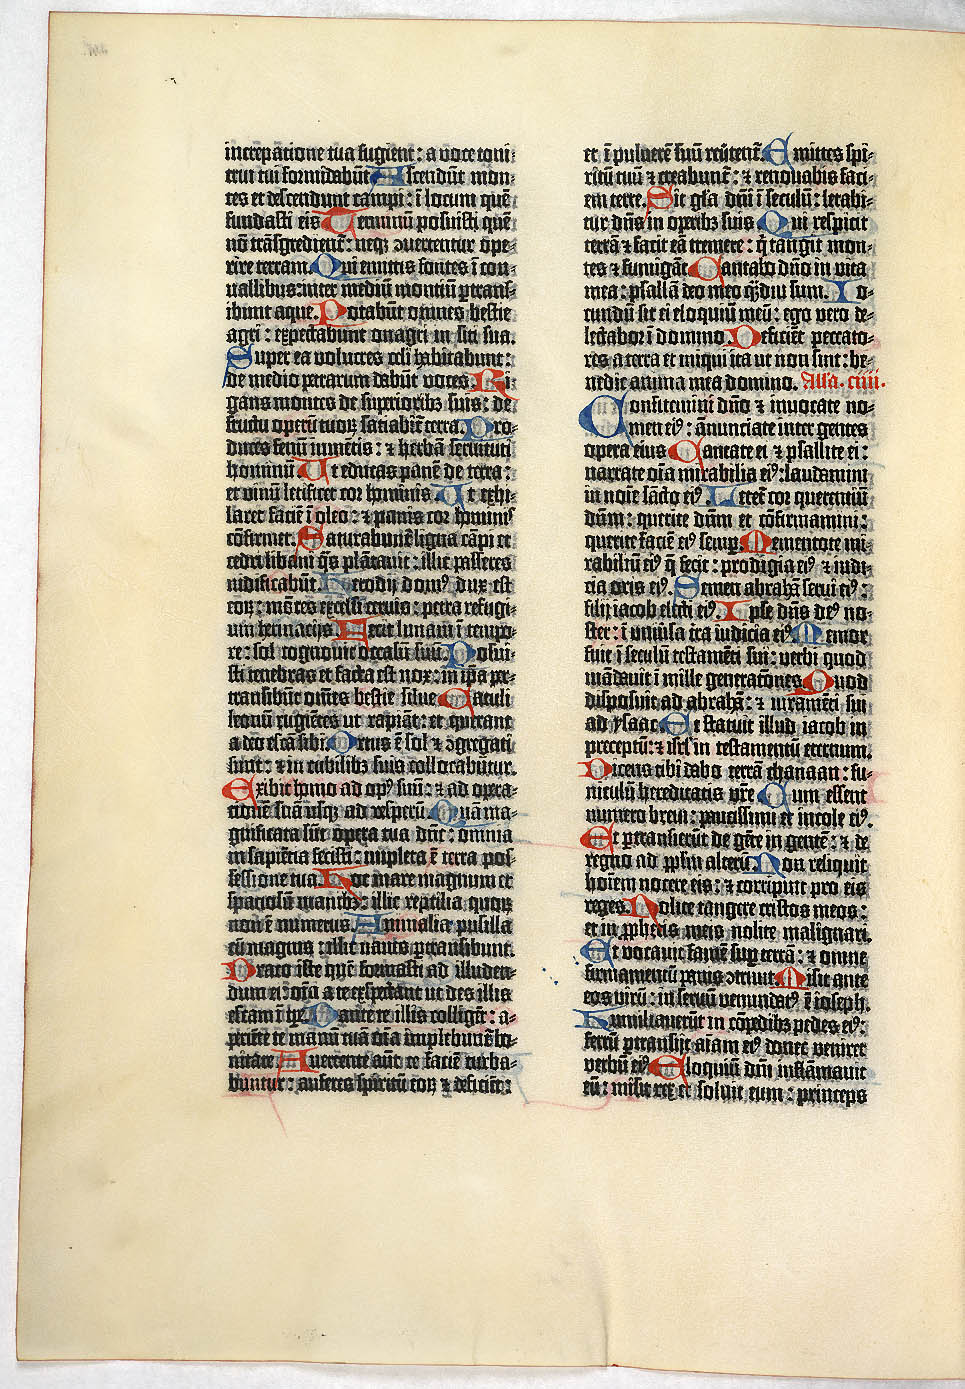 increpatione tua fugient: a voce toni-
trui tui formidabūt Ascendūt mon-
tes et descendunt campi: ī locum quē
fundasti eis Terminū posuisti quē
nō trāsgrediēt: neqꝫ ↄvertentur ope-
rire terram. Qui emittis fontes ī con-
uallibus: inter mediū montiū ꝑtrans-
ibunt aque. Potabūt omnes bestie
agri: expectabunt onagri in siti sua.
Super ea volucres celi habitabunt:
de medio petrarum dabūt voces. Ri-
gans montes de superioribꝫ suis: de
fructu operū tuoꝝ satiabit̄ terra. Pro-
ducens fenū iumētis: ⁊ herbā seruituti
hominū Ut educas panē de terra:
et vinū letificet cor hominis. Ut exhi-
laret faciē ī oleo: ⁊ panis cor hominis
cōfirmet. Saturabunt̄ ligna cāpi et
cedri libani q̄s plātavit: illic passeres
nidificabūt. Herodij domꝰ dux est
eoꝝ: mōtes excelsi ceruis: petra refugi-
um herinacijs. Fecit lunam ī tempo-
re: sol cognouit occasū suū. Posui-
sti tenebras et facta est nox: in ip̄a per-
transibūt om̄es bestie silue Catuli
leonū rugiētes ut rapiāt: et querant
a deo escā sibi. Ortus ē sol ⁊ ↄgregati
sunt: ⁊ in cubilibꝫ suis collocabūtur.
Exibit homo ad opꝰ suū: ⁊ ad opera-
tionē suā usqꝫ ad vesperū Quā ma-
gnificata sūt opera tua dn̄e: omnia
in sapiētia fecisti: impleta ē terra pos-
sessione tua. Hoc mare magnum et
spaciosū manibꝫ: illic reptilia quoꝝ
non ē numerus. Animalia pusilla
cū magnis: illic naues ꝑtransibunt.
Draco iste quē formasti ad illuden-
dum ei: oīa a te expectant ut des illis
escam ī tp̄e. Dante te illis colligēt: a-
periēte te manū tuā oīa implebunt̄ bo-
nitate. Auertente aūt te faciē turba-
buntur: auferes spiritū eoꝝ ⁊ deficiēt:
et ī puluerē suū reūtent̄. Emittes spi-
ritū tuū ⁊ creabunt̄: ⁊ renouabis faci-
em terre. Sit gl̄ia dn̄i ī seculū: letabi-
tur dn̄s in operibꝫ suis Qui respicit
terrā ⁊ facit eā tremere: q̄ tangit mon-
tes ⁊ fumigāt Cantabo dn̄o in vita
mea: psallā deo meo q̄diu sum. Io-
cundū sit ei eloquiū meū: ego vero de-
lectabor ī domino. Deficiēt peccato-
res a terra et iniqui ita ut non sint: be-
nedic anima mea domino. Alla. ciiii.
Confitemini dn̄o ⁊ inuocate no-
men eiꝰ: ānunciate inter gentes
opera eius Cantate ei ⁊ psallite ei:
narrate oīa mirabilia eiꝰ: laudamini
in noīe sācto eiꝰ. Letet̄ cor querentiū
dūm: querite dūm et cōfirmamini:
querite faciē eiꝰ semꝑ. Mementote mi-
rabiliū eiꝰ q̄ fecit: prodigia eiꝰ ⁊ iudi-
cia oris eiꝰ. Semen abrahā serui eiꝰ:
filij iacob electi eiꝰ. Ipse dn̄s deꝰ no-
ster: ī uniūsa terra iudicia eiꝰ Memor
fuit ī seculū testamēti sui: verbi quod
mādauit ī mille generatōnes. Quod
disposuit ad abrahā: ⁊ iuramēti sui
ad ysaac. Et statuit illud iacob in
preceptū: ⁊ isrl̄ in testamentū eternum.
Dicens tibi dabo terrā chanaan: fu-
niculū hereditatis vr̄e Cum essent
numero breui: paucissimi et incole eiꝰ.
Et ꝑtransierūt de gēte in gentē: ⁊ de
regno ad pp̄lm alterū. Non reliquit
hoīem nocere eis: ⁊ corripuit pro eis
reges. Nolite tangere cristos meos:
et in ꝓphetis meis nolite malignari.
Et vocauit famē suꝑ terrā: ⁊ omne
firmamentū panis ↄtriuit. Misit ante
eos virū: in seruū venundatꝰ ē ioseph.
Humiliauerūt in cōpedibꝫ pedes eiꝰ:
ferrū ꝑtransijt aīam eiꝰ donec veniret
verbū eiꝰ. Eloquiū dn̄i inflāmauit
eū: misit rex et soluit eum: princeps